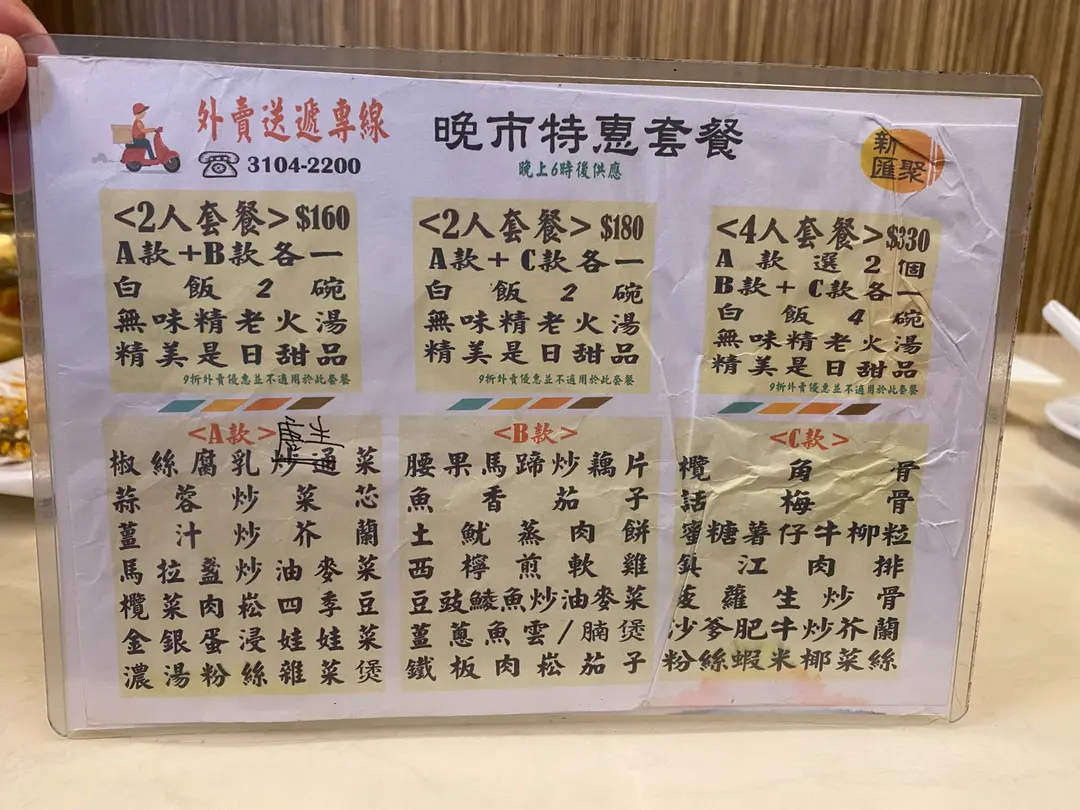 外賣送遞專線
3104-2200
晚市特惠套餐
晚上6時後供應
新匯聚
<2人套餐> $160
A款+B款各一
白飯2碗
無味精老火湯
精美是日甜品
9折外賣優惠並不適用於此套餐
<2人套餐> $180
A款+C款各一
白飯2碗
無味精老火湯
精美是日甜品
9折外賣優惠並不適用於此套餐
<4人套餐> $330
A款選2個
B款+C款各一
白飯4碗
無味精老火湯
精美是日甜品
9折外賣優惠並不適用於此套餐
<A款>
椒絲腐乳炒通菜
蒜蓉炒菜芯
薑汁炒芥蘭
馬拉盞炒油麥菜
欖菜肉崧四季豆
金銀蛋浸娃娃菜
濃湯粉絲雜菜煲
<B款>
腰果馬蹄炒藕片
魚香茄子
土魷蒸肉餅
西檸煎軟雞
豆豉鯪魚炒油麥菜
薑蔥魚雲/腩煲
鐵板肉崧茄子
<C款>
欖角骨
話梅骨
蜜糖薯仔牛柳粒
鎮江肉排
菠蘿生炒骨
沙爹肥牛炒芥蘭
粉絲蝦米椰菜絲